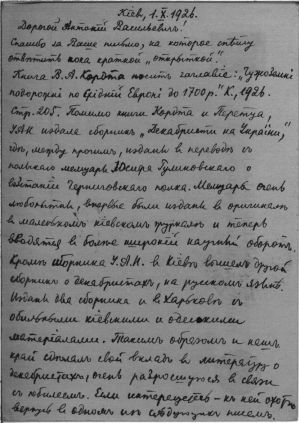 Киев, 1.X.1926.
Дорогой Антоний Васильевич!
Спасибо за Ваше письмо, на которое спешу
ответить пока краткой "открыткой".
Книга В.А. Кордта носит заглавие: "Чужоземні
подорожні по Східній Европі до 1700 р." К., 1926.
Стр. 205. Помимо книги Кордта и Перетца,
УАН издала сборник "Декабристи на Україні,"
где, между прочим, изданы в переводе с
польского мемуары Юзефа Руликовского о
восстании Черниговского полка. Мемуары очень
любопытны, впервые были изданы в оригинале
в маленьком киевском журнале и теперь
вводятся в более широкий научный оборот.
Кроме сборника У.А.Н. в Киеве вышел другой
сборник о декабристах, на русском языке.
Изданы два сборника и в Харькове с
обильными киевскими и одесскими
материалами. Таким образом и наш
край сделал свой вклад в литературу о
декабристах, очень разросшуюся в связи
с юбилеем. Если интересуетесь - к ней охотно
вернусь в одном из следующих писем.